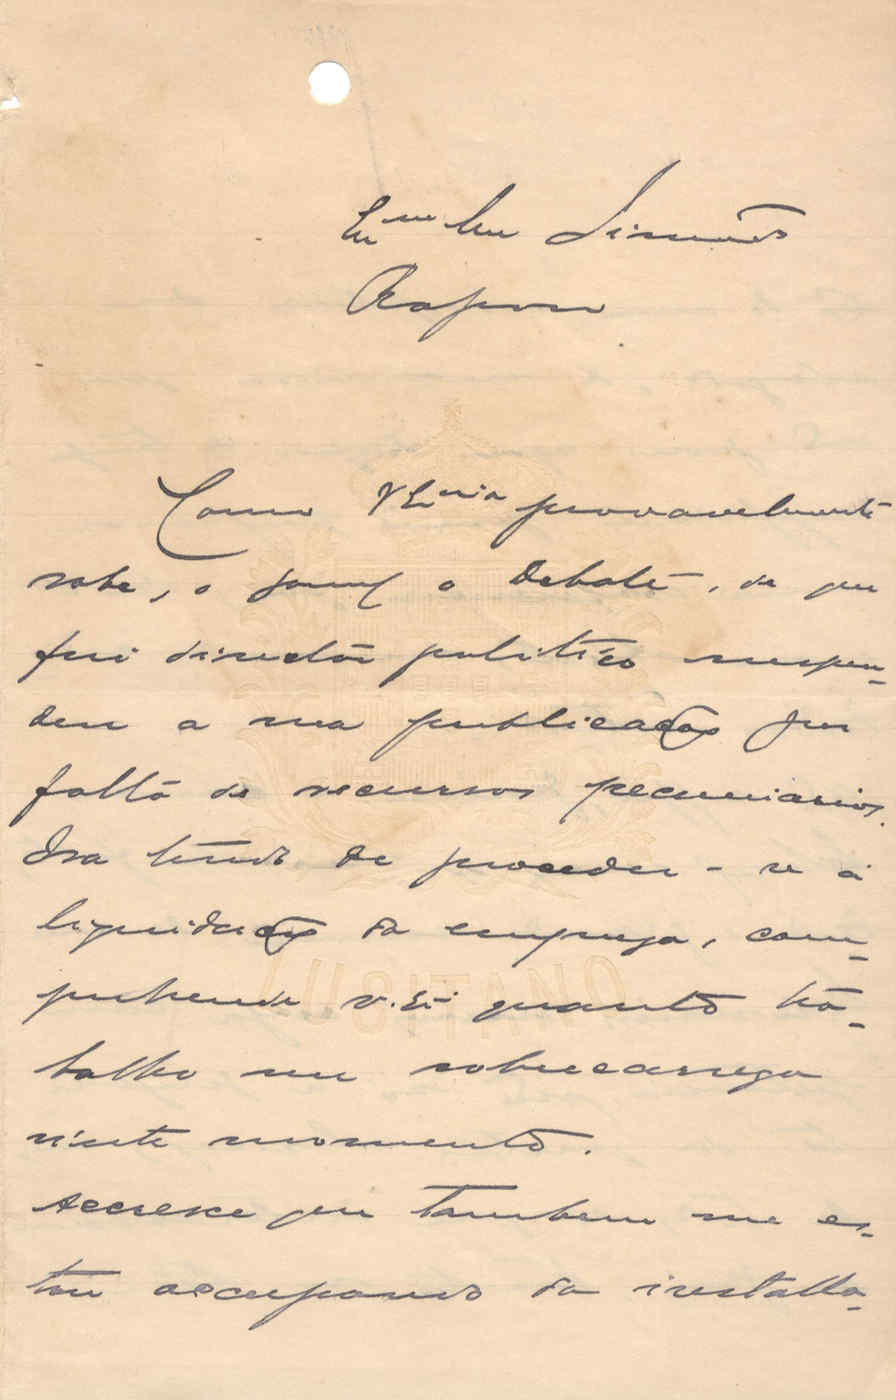 Exmo Snr Simões
Raposo
Como V Excia provavelmente
sabe, o jornal o Debate, de que
fui director politico suspen-
deu a sua publicação por
falta de recursos pecuniarios.
Ora tendo de proceder-se á
liquidação da empreza, com-
prehende V. Exa quanto tra-
balho me sobrecarrega
n'este momento.
Accresce que tambem me es-
tou occupando da installa-
LUSITANO